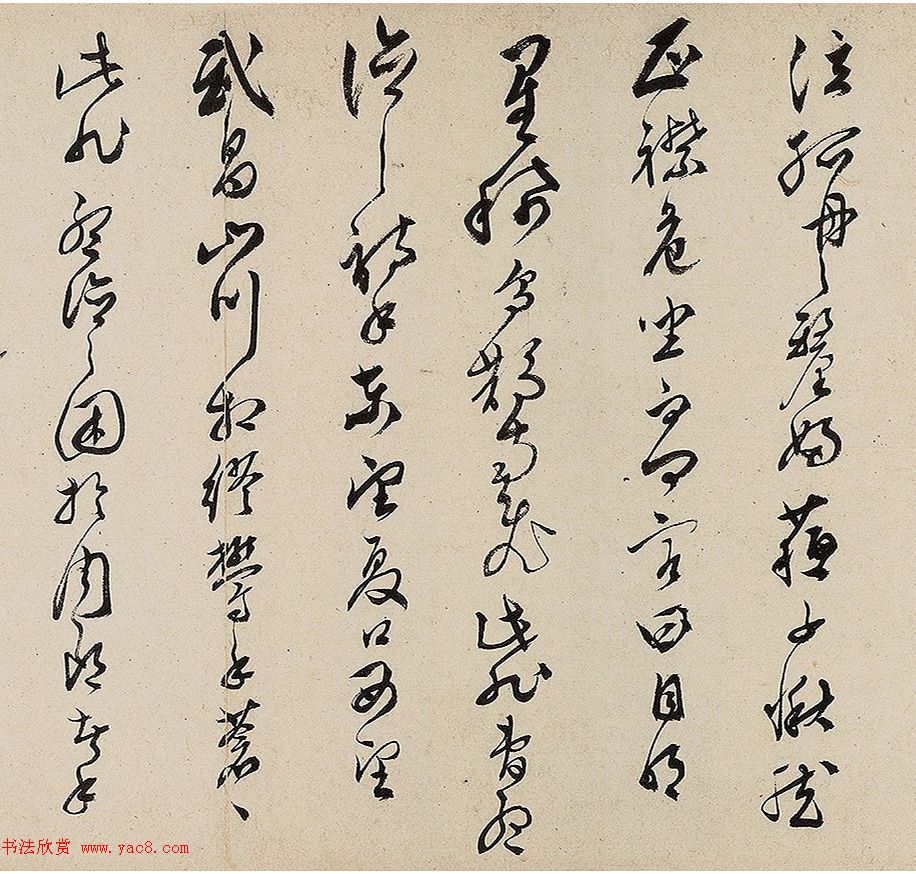 泣孤舟之嫠婦蘇子愀然
正襟危坐而問客曰月明
星稀烏鵲南飛此非曹孟
德之詩乎東望夏口西望
武昌山川相繆鬱乎蒼〻
此非孟德之困於周郎者乎
书法欣赏 www.yac8.com